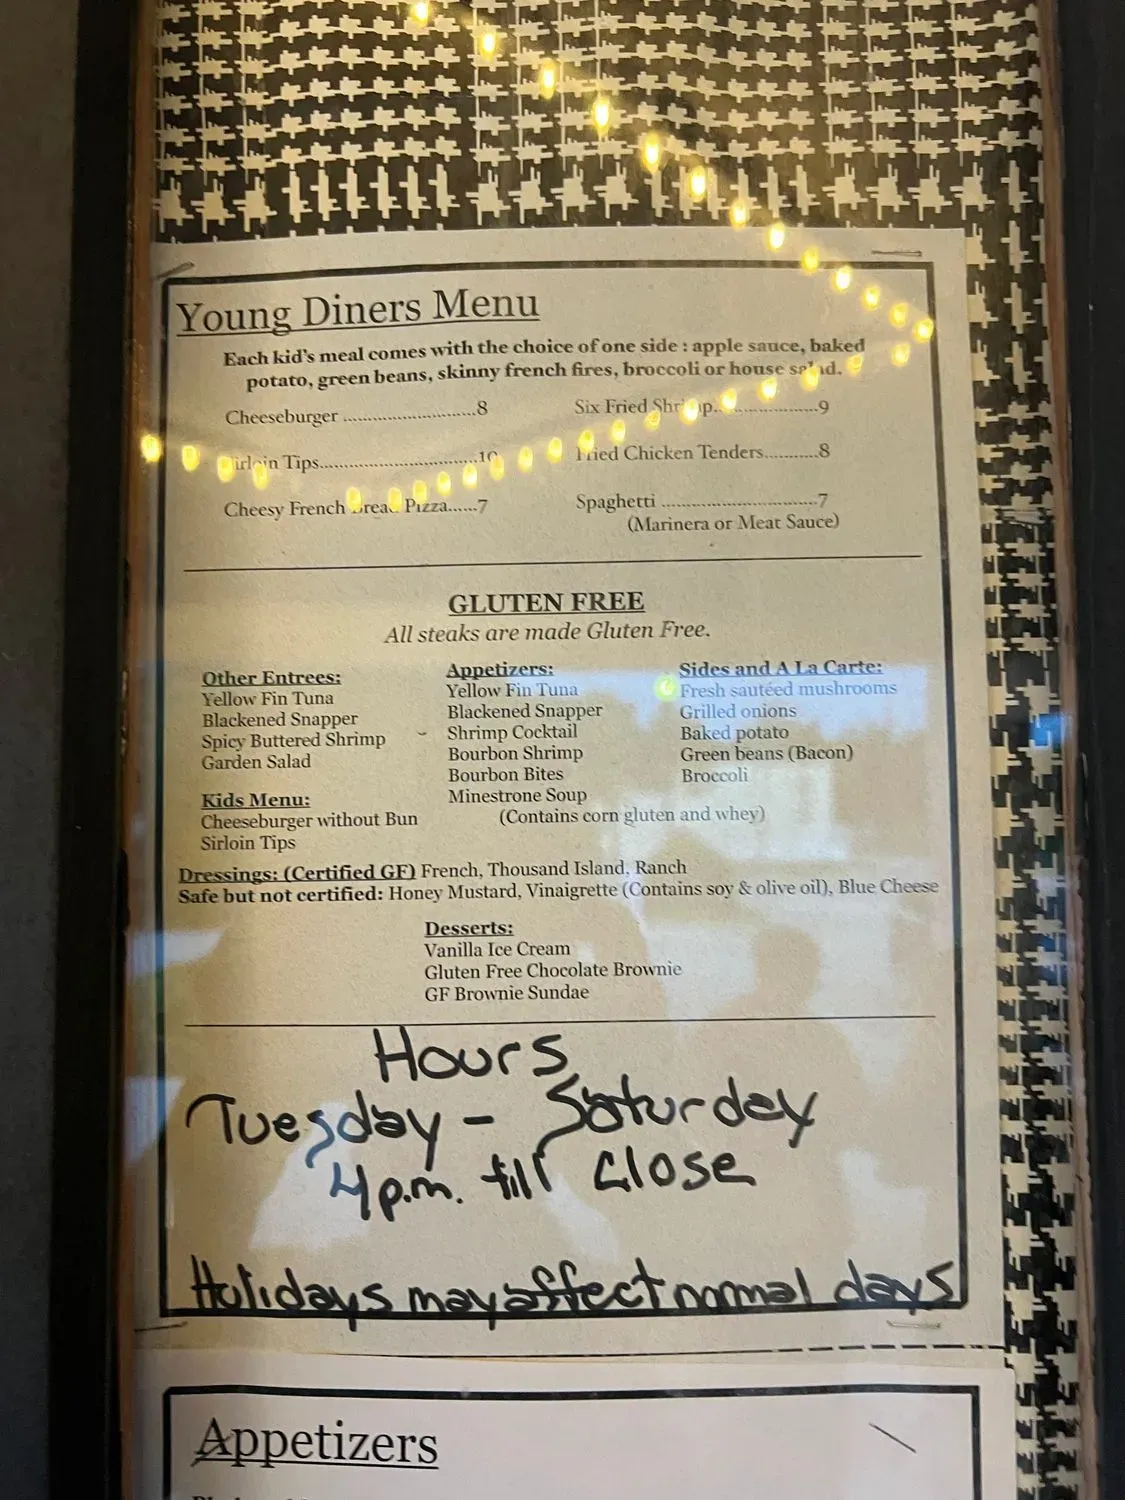 Young Diners Menu
Each kid's meal comes with the choice of one side : apple sauce, baked
potato, green beans, skinny french fires, broccoli or house salad.
Cheeseburger ............................8
Six Fried Shrimp.....................9
Sirloin Tips.................................10
Fried Chicken Tenders...........8
Cheesy French Bread Pizza......7
Spaghetti ................................7
(Marinera or Meat Sauce)
GLUTEN FREE
All steaks are made Gluten Free.
Other Entrees:
Yellow Fin Tuna
Blackened Snapper
Spicy Buttered Shrimp
Garden Salad
Kids Menu:
Cheeseburger without Bun
Sirloin Tips
Appetizers:
Yellow Fin Tuna
Blackened Snapper
Shrimp Cocktail
Bourbon Shrimp
Bourbon Bites
Minestrone Soup
(Contains corn gluten and whey)
Sides and A La Carte:
Fresh sautéed mushrooms
Grilled onions
Baked potato
Green beans (Bacon)
Broccoli
Dressings: (Certified GF) French, Thousand Island, Ranch
Safe but not certified: Honey Mustard, Vinaigrette (Contains soy & olive oil), Blue Cheese
Desserts:
Vanilla Ice Cream
Gluten Free Chocolate Brownie
GF Brownie Sundae
Hours
Tuesday - Saturday
4 p.m. till close
Holidays may affect normal days
Appetizers